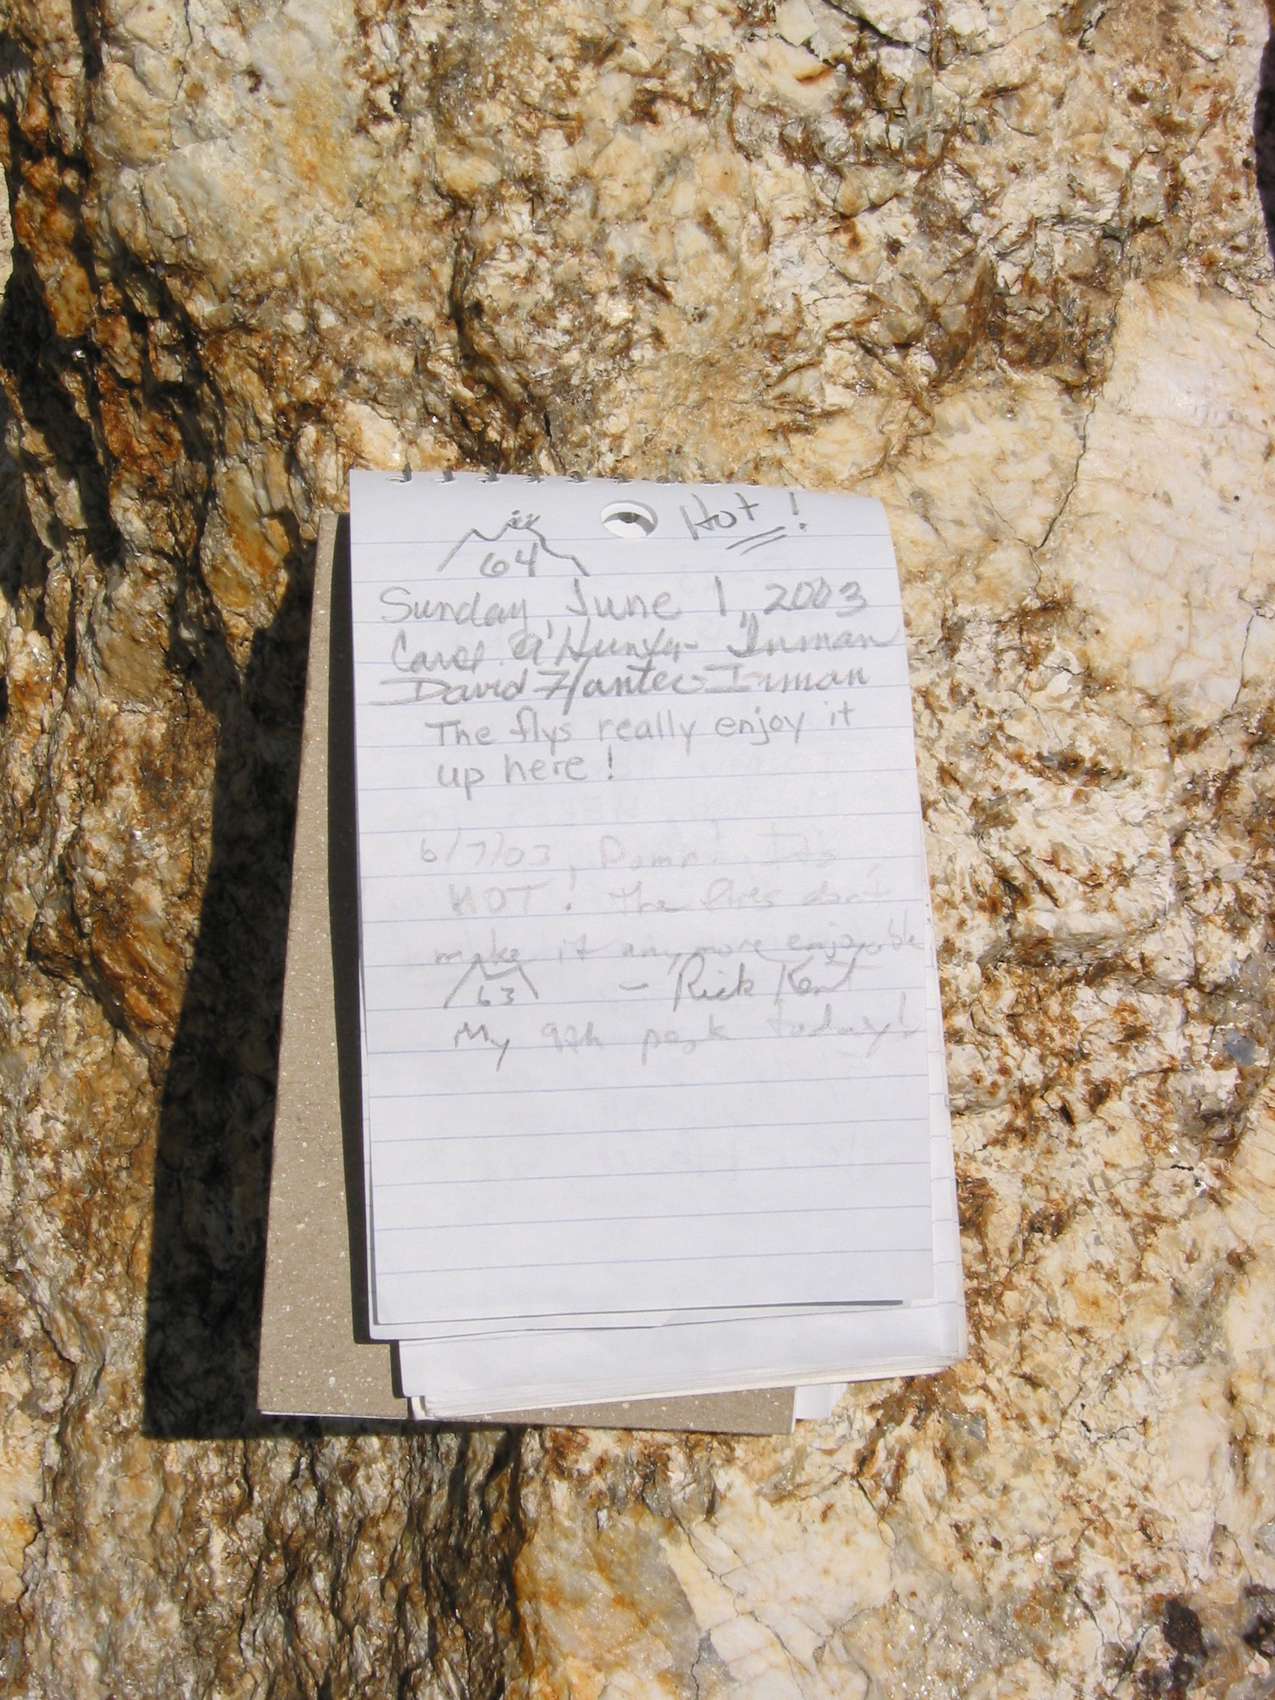 64 Hot!
Sunday, June 1, 2003
Carol Inman
David Hunter-Inman
The flys really enjoy it
up here!
6/7/03, Damn! Its
HOT! The flies don't
make it anymore enjoyable
63 - Rick Kent
My 9th peak today!